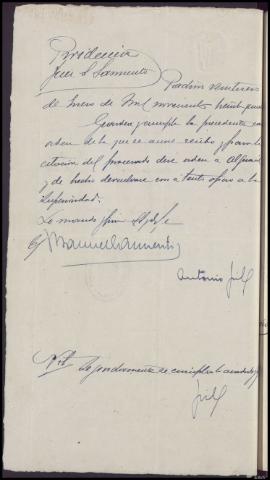 Providencia
Juez S. Sarmiento
Padrón veintitres
de Enero de mil novecientos treinta
Guardese y cumplase la precedente
orden de la que se acuse recibo y para la
citacion del procesado dese orden a Alguacil
y de hecho devuelvase con atento oficio a la
Superioridad.
Lo mando y firma S.S. doy fe
Manuel Sarmiento
Antonio
Seguidamente se cumple lo acordado